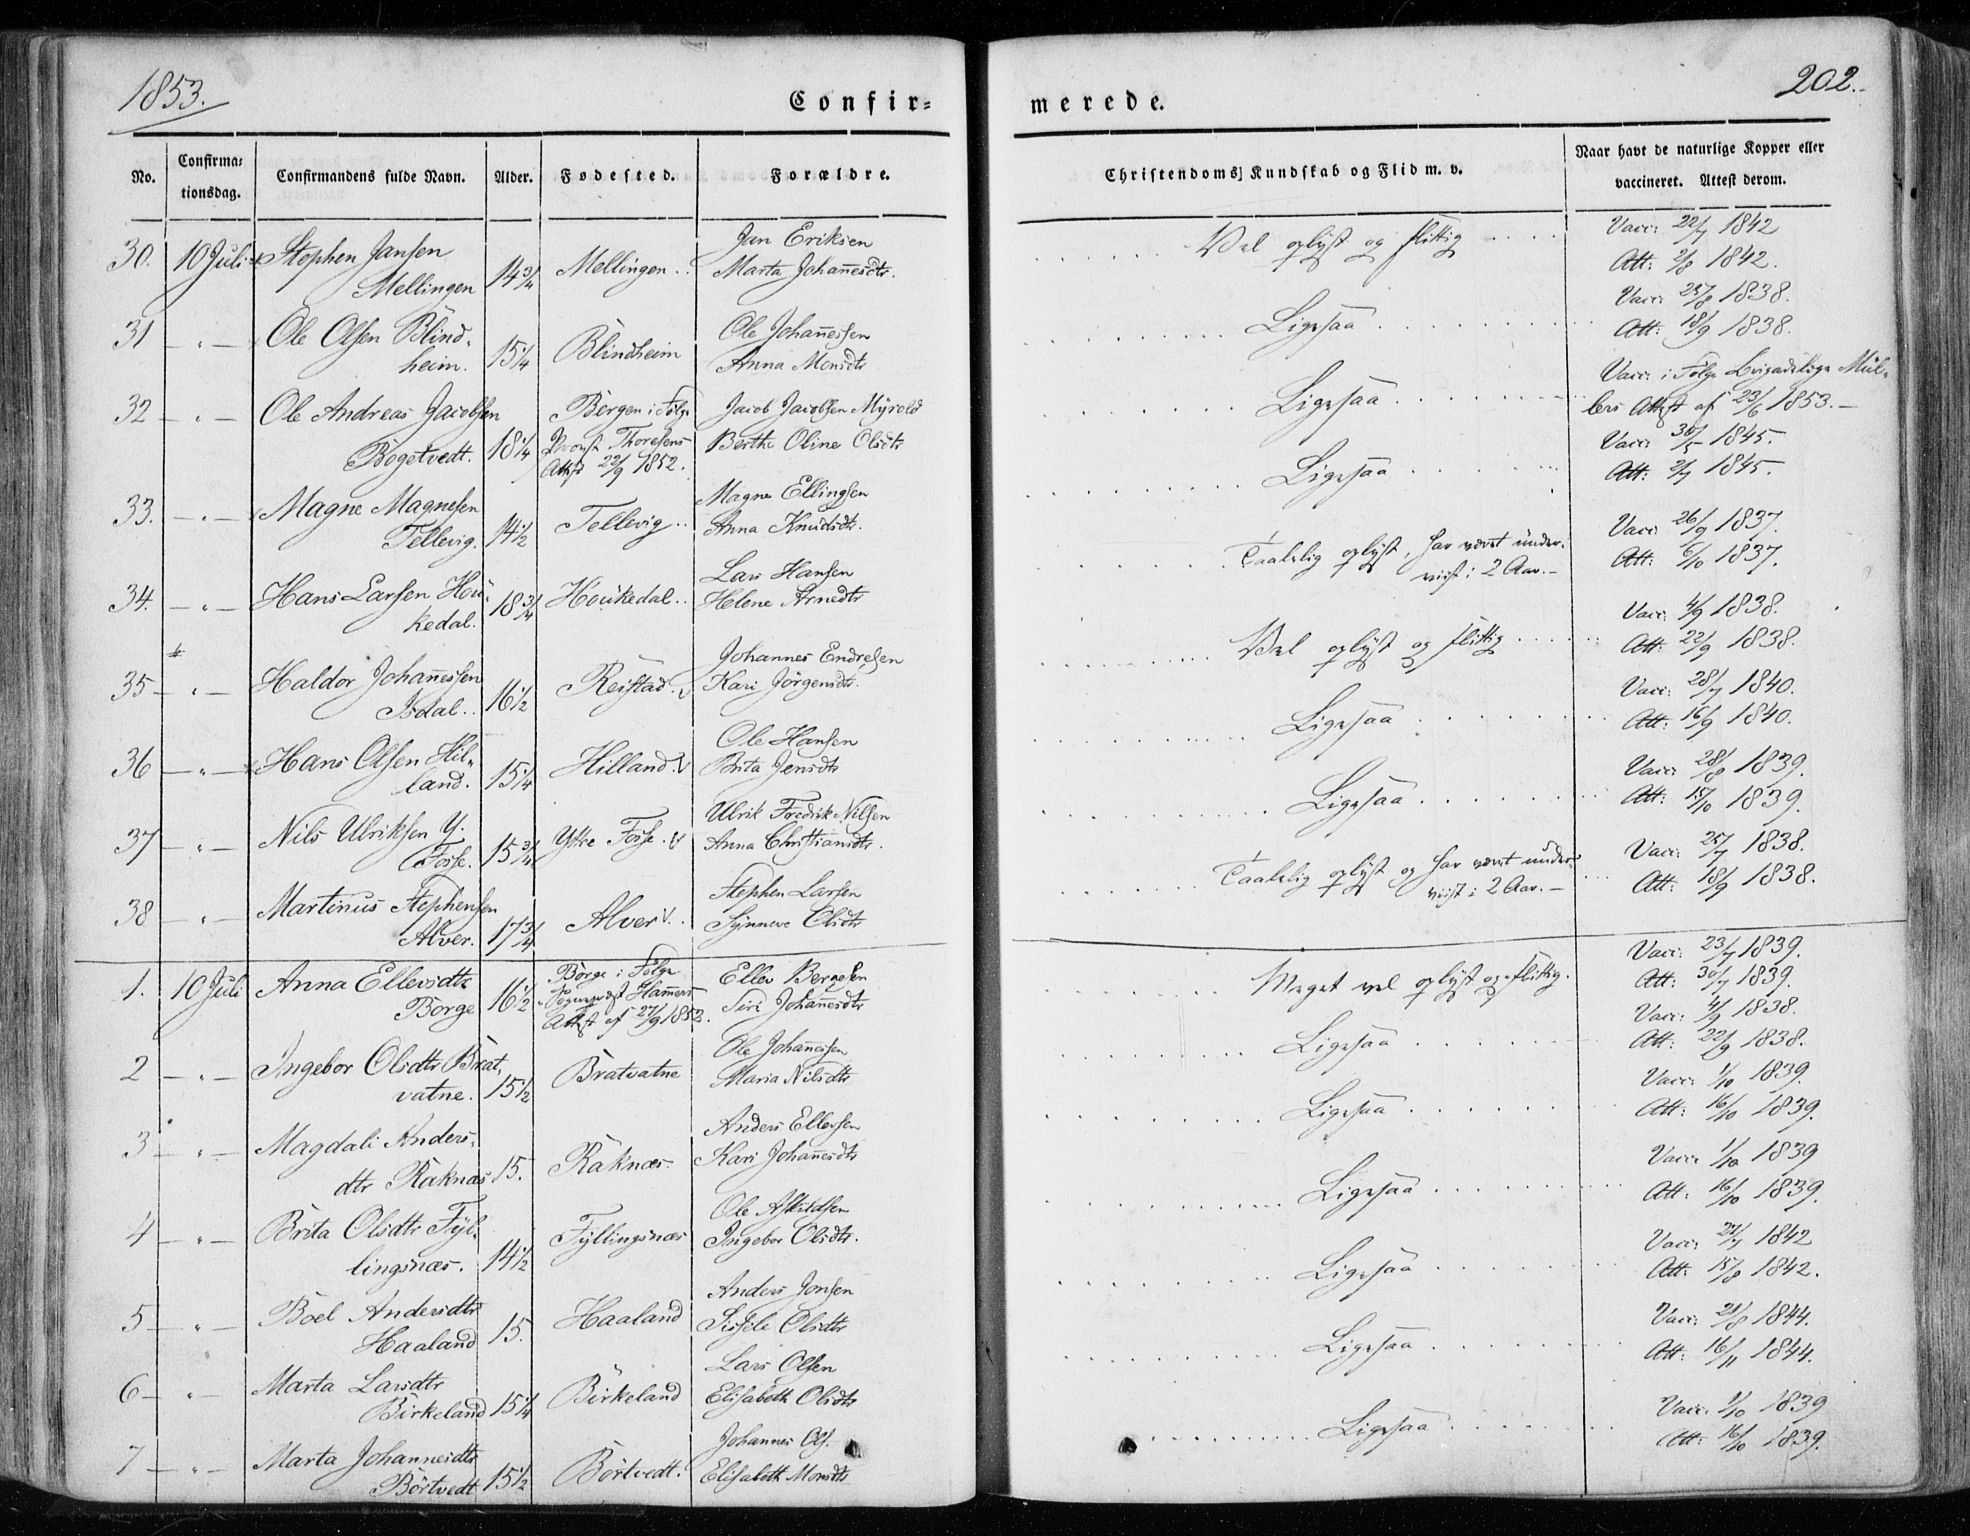 1853.
Confir=
No.
Confirma=
tionsdag.
Confirmandens fulde Navn.
Alder.
Fodested.
Forældre.
30. 10 Juli Stephen Jansen
Mellingen 14 3/4 Mellingen Jan Eriksen
Marta Johannesdtr.
31 — " — Ole Olsen Blind-
heim. 15 1/4 Blindheim Ole Johannessen
Anna Monsdtr
32 — " — Ole Andreas Jacobsen
Bogetvedt. 18 1/4 Bergen i Følge
Provst Thoresens
Attest 22/9 1852. Jacob Jacobsen Myrold
Berthe Oline Olsdtr
33. — " — Magne Magnesen
Tellevig. 14 1/2 Tellevig Magne Ellingsen
Anna Knudsdtr.
34. — " — Hans Larsen Hou-
kedal. 18 3/4 Houkedal Lars Hansen
Helene Arnedtr
35 — " — Haldor Johannessen
Isdal. 16 1/2 Reistad Johannes Endresen
Kari Jörgensdtr.
36 — " — Hans Olsen Hil-
land. 15 1/4 Hilland Ole Hansen
Brita Jensdtr
37 — " — Nils Ulriksen Y.
Fosse. 15 3/4 Ystre Fosse Ulrik Fredrik Nilsen
Anna Christiansdtr.
38 — " — Martinus Stephensen
Alver. 17 3/4 Alver Stephen Larsen
Synneve Olsdtr
1. 10 Juli Anna Ellevsdtr
Borge 16 1/2 Borge i Følge
Sogneprest Hammers
Attest af 27/9 1852. Ellev Bergesen
Siri Johannesdtr
2 — " — Ingebor Olsdtr Brat-
vatne. 15 1/2 Bratvatne Ole Johannessen
Maria Nilsdtr
3 — " — Magdali Anders-
dtr Raknæs 15. Raknæs Anders Ellevsen
Kari Johannesdtr
4 — " — Brita Olsdtr Fyl-
lingsnæs. 14 1/2 Fyllingsnæs Ole Askildsen
Ingebor Olsdtr.
5 — " — Boel Andersdtr
Haaland 15. Haaland Anders Jonsen
Sissele Olsdtr
6 — " — Marta Larsdtr
Birkeland 15 1/4 Birkeland Lars Olsen
Elisabeth Olsdtr
7 — " — Marta Johannesdtr
Börtvedt 15 1/2 Börtvedt Johannes Ols.
Elisabeth Monsdtr
202.
merede.
Christendoms Kundskab og Flid m. v.
Naar havt de naturlige Kopper eller
vaccineret. Attest derom.
Vel oplyst og flittig Vacc: 22/7 1842
Att: 2/8 1842.
Ligesaa Vacc: 25/8 1838.
Att: 18/9 1838.
Ligesaa Vacc: i Følge Brigadelæge Mül-
lers Attest af 23/6 1853.—
Ligesaa Vacc: 30/5 1845.
Att: 2/7 1845.
Taalelig oplyst, har været under-
viist i 2 Aar.— Vacc: 26/9 1837.
Att: 6/10 1837.
Vel oplyst og flittig Vacc: 4/9 1838.
Att: 22/9 1838.
Ligesaa Vacc: 28/7 1840.
Att: 16/9 1840.
Ligesaa Vacc: 28/8 1839.
Att: 15/10 1839.
Taalelig oplyst og har været under-
viist i 2 Aar.— Vacc: 25/7 1838.
Att: 18/9 1838.
Meget vel oplyst og flittig. Vacc: 23/7 1839.
Att: 30/7 1839.
Ligesaa Vacc: 4/9 1838.
Att: 22/9 1838.
Ligesaa Vacc: 1/10 1839.
Att: 16/10 1839.
Ligesaa Vacc: 1/10 1839
Att: 16/10 1839.
Ligesaa Vacc: 1842
Att: 15/8 1842.
Ligesaa Vacc: 21/8 1844.
Att: 16/11 1844.
Ligesaa Vacc: 1/10 1839
Att: 16/10 1839.